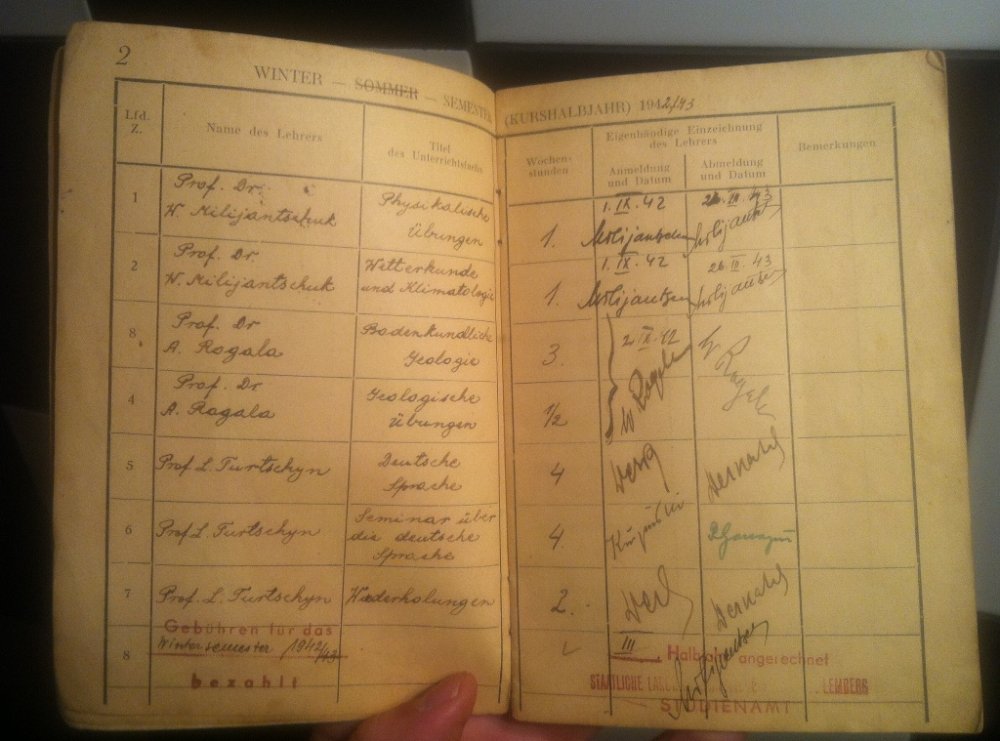 2
WINTER — SOMMER — SEMESTER (KURSHALBJAHR) 1942/43
Lfd. Z.
Name des Lehrers
Titel des Unterrichtsfachs
Wochenstunden
Eigenhändige Einzeichnung des Lehrers
Anmeldung und Datum
Abmeldung und Datum
Bemerkungen
1
Prof. Dr.
W. Milijantschuk
Physikalische
Übungen
1.
1. IX. 42
26. III. 43
2
Prof. Dr
W. Milijantschuk
Wetterkunde
und Klimatologie
1.
1. IX. 42
26. III. 43
8
Prof. Dr
A. Rogala
Bodenkundliche
Geologie
3.
2. IX. 42
Rogala
4
Prof. Dr
A. Rogala
Geologische
Übungen
1/2
5
Prof. L. Turtschyn
Deutsche
Sprache
4
6
Prof. L. Turtschyn
Seminar über
die deutsche
Sprache
4.
7
Prof. L. Turtschyn
Wiederholungen
2.
8
Gebühren für das
Wintersemester 1942/43
bezahlt
III Halbjahr angerechnet
STAATLICHE LEMBERG
STUDIENAMT